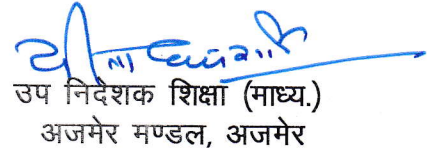 उप निदेशक शिक्षा (माध्य.)
अजमेर मण्डल, अजमेर